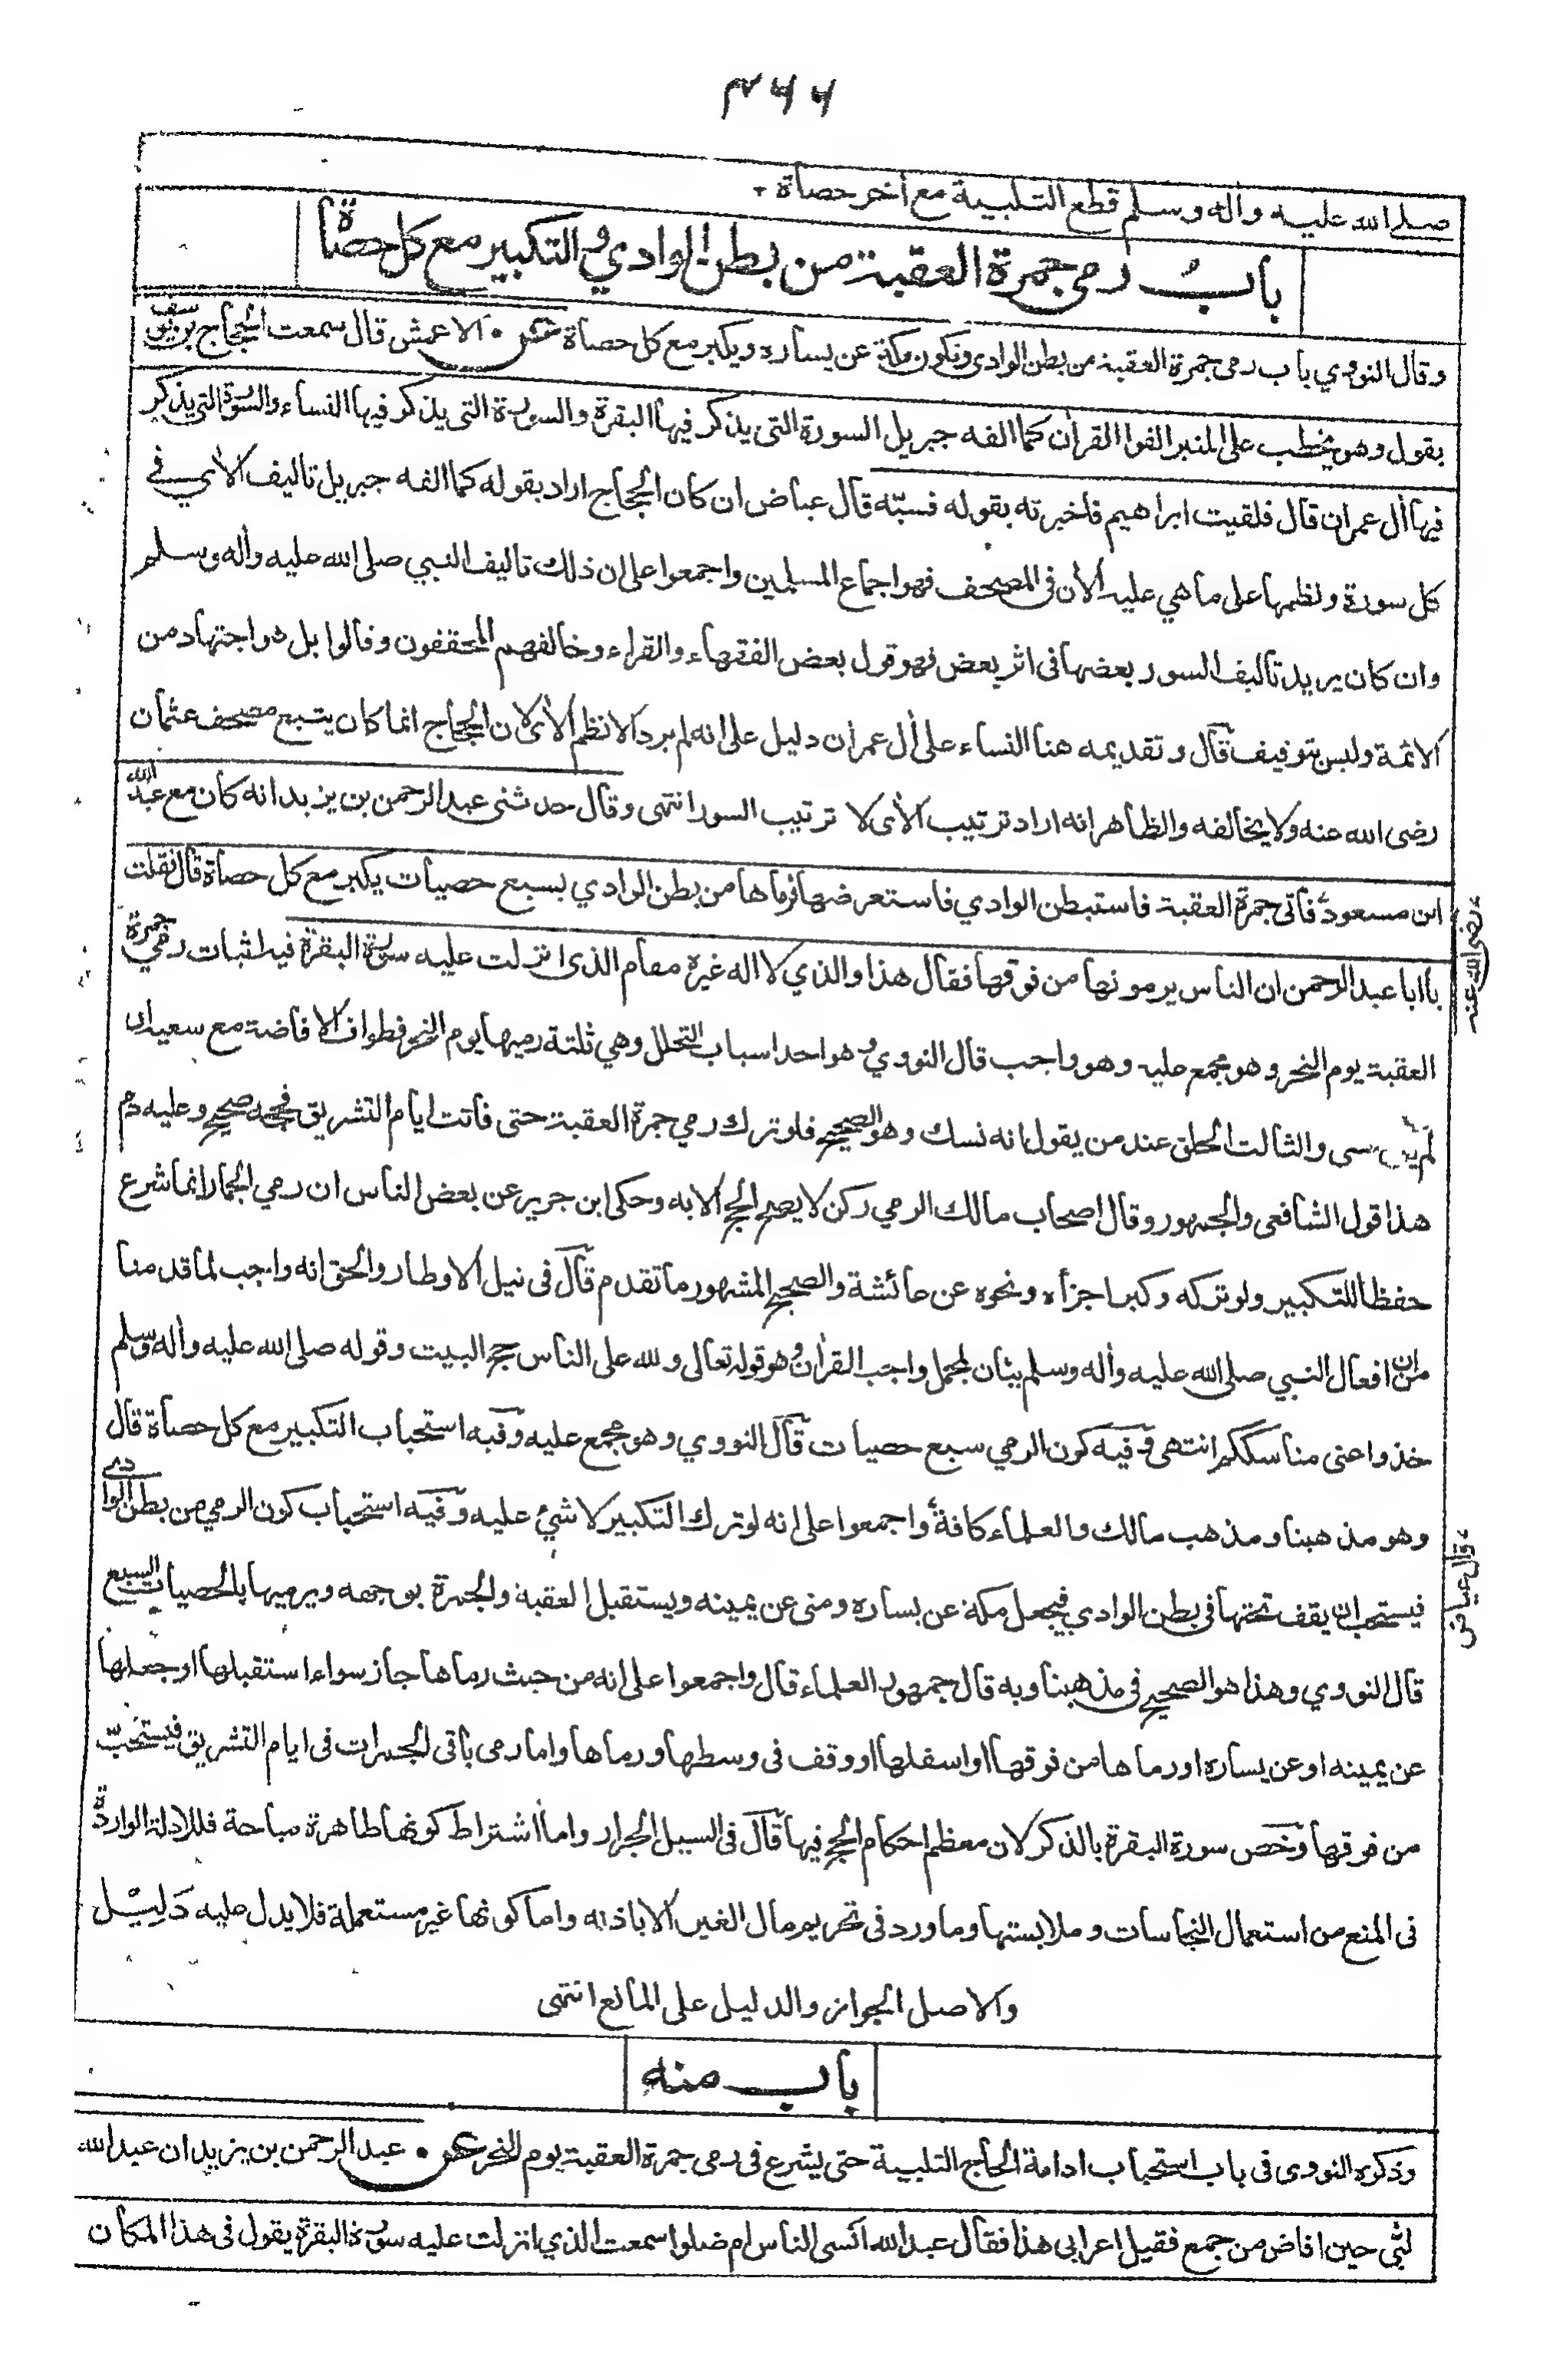 ٣٦٦
صلى الله عليه واٰله وسلم قطع التلبية مع اٰخر حصاة +
باب رمى جمرة العقبة من بطن الوادي والتكبير مع كل حصاة
وقال النووي باب رمى جمرة العقبة من بطن الوادى وتكون مكة عن يساره ويكبر مع كل حصاة عن الاعمش قال سمعت الحجاج بن يوسف
يقول وهو يخطب على المنبر الفوا القراٰن كما الفه جبريل السورة التى يذكر فيها البقرة والسورة التى يذكر فيها النساء والسورة التى يذكر
فيها اٰل عمران قال فلقيت ابراهيم فاخبرته بقوله فسبّه قال عياض ان كان الحجاج اراد بقوله كما الفه جبريل تاليف الاٰي في
كل سورة ونظمها على ما هي عليه الاٰن فى المصحف فهو اجماع المسلمين واجمعوا على ان ذلك تاليف النبي صلى الله عليه واٰله وسلم
وان كان يريد تاليف السور بعضها فى اثر بعض فهو قول بعض الفقهاء والقراء وخالفهم المحققون وقالوا بل هو اجتهاد من
الائمة وليس بتوقيف قال وتقديمه هنا النساء على اٰل عمران دليل على انه لم يرد الا نظم الاٰى لان الحجاج انما كان يتبع مصحف عثمان
رضى الله عنه ولا يخالفه والظاهر انه اراد ترتيب الاٰى لا ترتيب السور انتهى وقال حدثنى عبد الرحمن بن يزيد انه كان مع عبد الله
ابن مسعود رضى الله عنه فاتى جمرة العقبة فاستبطن الوادي فاستعرضها فرماها من بطن الوادي بسبع حصيات يكبر مع كل حصاة قال فقلت
يا ابا عبد الرحمن ان الناس يرمونها من فوقها فقال هذا والذي لا اله غيره مقام الذى انزلت عليه سورة البقرة فيه اثبات رمي جمرة
العقبة يوم النحر وهو مجمع عليه وهو واجب قال النووي وهو احد اسباب التحلل وهي ثلثة رميها يوم النحر فطواف الافاضة مع سعيه ان
لم يكن سعى والثالث الحلق عند من يقول انه نسك وهو الصحيح فلو ترك رمي جمرة العقبة حتى فاتت ايام التشريق فحجه صحيح وعليه دم
هذا قول الشافعى والجمهور وقال اصحاب مالك الرمي ركن لا يصح الحج الا به وحكى ابن جرير عن بعض الناس ان رمي الجمار انما شرع
حفظا للتكبير ولو تركه وكبر اجزأه ونحوه عن عائشة والصحيح المشهور ما تقدم قال فى نيل الاوطار والحق انه واجب لما قدمنا
من ان افعال النبي صلى الله عليه واٰله وسلم بيان لمجمل واجب القراٰن وهو قوله تعالى ولله على الناس حج البيت وقوله صلى الله عليه واٰله وسلم
خذوا عنى مناسككم انتهى وفيه كون الرمي سبع حصيات قال النووي وهو مجمع عليه وفيه استحباب التكبير مع كل حصاة قال عياض قال
وهو مذهبنا ومذهب مالك والعلماء كافة واجمعوا على انه لو ترك التكبير لا شئ عليه وفيه استحباب كون الرمي من بطن الوادى
فيستحب ان يقف تحتها فى بطن الوادي فيجعل مكة عن يساره ومنى عن يمينه ويستقبل العقبة والجمرة بوجهه ويرميها بالحصيات السبع
قال النووي وهذا هو الصحيح فى مذهبنا وبه قال جمهور العلماء قال واجمعوا على انه من حيث رماها جاز سواء استقبلها او جعلها
عن يمينه او عن يساره او رماها من فوقها او اسفلها او وقف فى وسطها ورماها واما رمى باقى الجمرات فى ايام التشريق فيستحبّ
من فوقها وخص سورة البقرة بالذكر لان معظم احكام الحج فيها قال فى السيل الجرار واما اشتراط كونها طاهرة مباحة فللادلة الواردة
فى المنع من استعمال النجاسات وملابستها وما ورد فى تحريم مال الغير الا باذنه واما كونها غير مستعملة فلا يدل عليه دَلِيْل
والاصل الجواز والدليل على المانع انتهى
باب منه
وذكره النووى فى باب استحباب ادامة الحاج التلبية حتى يشرع فى رمى جمرة العقبة يوم النحر عن عبد الرحمن بن يزيد ان عبد الله
لبّى حين افاض من جمع فقيل اعرابى هذا فقال عبد الله انسى الناس ام ضلوا سمعت الذي انزلت عليه سورة البقرة يقول فى هذا المكان